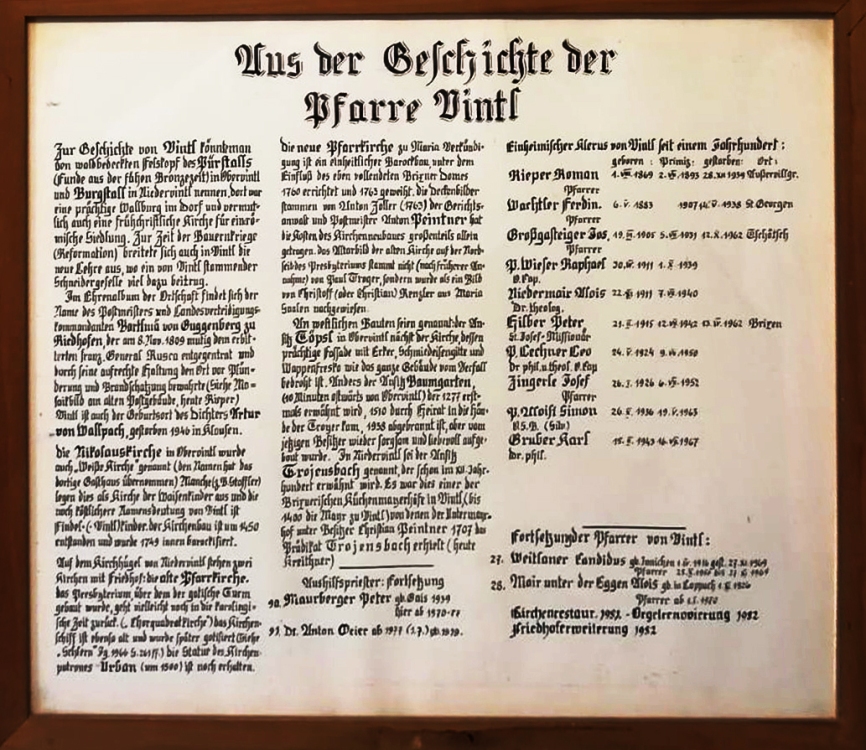 Aus der Geschichte der
Pfarre Vintl
Zur Geschichte von Vintl könnte man
von waldbedeckten Felskopf des Pürstalls
(Funde aus der frühen Bronzezeit) in Obervintl
und Burgstall in Niedervintl nennen, dort war
eine prächtige Wallburg im Dorf und vermut-
lich auch eine frühchristliche Kirche für einrö-
mische Siedlung. Zur Zeit der Bauernkriege
(Reformation) breitete sich auch in Vintl die
neue Lehre aus, wo ein von Vintl stammender
Schneidergeselle viel dazu beitrug.
Im Ehrenalbum der Ortschaft findet sich der
Name des Postmeisters und Landesverteidigungs-
kommandanten Bartlmä von Guggenberg zu
Riedhofen, der am 8. Nov. 1809 mutig dem erbit-
terten franz. General Rusca entgegentrat und
durch seine aufrechte Haltung den Ort vor Plün-
derung und Brandschatzung bewahrte (Siehe Mo-
saikbild am alten Postgebäude, heute Rieper)
Vintl ist auch der Geburtsort des Dichters Artur
von Wallpach, gestorben 1946 in Klausen.
Die Nikolauskirche in Obervintl wurde
auch „Weiße Kirche" genannt (den Namen hat das
dortige Gasthaus übernommen) Manche (z.B. Staffler)
legen dies als Kirche der Waisenkinder aus und die
noch köstlichere Namensdeutung von Vintl ist
Findel- (-Vintl)kinder. der Kirchenbau ist um 1450
entstanden und wurde 1749 innen barockisiert.
Auf dem Kirchhügel von Niedervintl stehen zwei
Kirchen mit Friedhof: die alte Pfarrkirche.
das Presbyterium, über dem der gotische Turm
gebaut wurde, geht vielleicht noch in die karolingi-
sche Zeit zurück. (Chorquadratkirche) das Kirchen-
schiff ist ebenso alt und wurde später gotisiert (Siehe
„Schlern" Jg. 1966 S. 261 ff.) die Statue des Kirchen-
patrones Urban (um 1500) ist noch erhalten.
die neue Pfarrkirche zu Maria Verkündi-
gung ist ein einheitlicher Barockbau, unter dem
Einfluß des eben vollendeten Brixner Domes
1760 errichtet und 1763 geweiht. die Deckenbilder
stammen von Anton Zoller (1763) der Gerichts-
anwalt und Postmeister Anton Peintner hat
die Kosten des Kirchenneubaues großenteils allein
getragen. Das Altarbild der alten Kirche auf der Nord-
seid des Presbyteriums stammt nicht (nach früherer An-
nahme) von Paul Troger, sondern wurde als ein Bild
von Christoff (oder Christian) Renzler aus Maria
Saalen nachgewiesen.
An weltlichen Bauten seien genannt: der An-
sitz Töpsl in Obervintl nächst der Kirche, dessen
prächtige Fassade mit Erker, Schmiedeisengitte und
Wappenfreske wie das ganze Gebäude vom Verfall
bedroht ist. Anders der Ansitz Baumgarten,
(10 Minuten ostwärts von Obervintl) der 1277 erst-
mals erwähnt wird, 1510 durch Heirat in die Hän-
de der Troyer kam, 1938 abgebrannt ist, aber vom
jetzigen Besitzer wieder sorgsam und liebevoll aufge-
baut wurde. In Niedervintl sei der Ansitz
Trojensbach genannt, der schon im XII. Jahr-
hundert erwähnt wird. Es war dies einer der
Brixnerischen Küchenmayerhöfe in Vintl, (bis
1400 die Mayr zu Vintl) von denen der Untermayr-
hof unter Besitzer Christian Peintner 1707 das
Prädikat Trojensbach erhielt (heute
Kreithner)
Aushilfspriester: Fortsetzung
90. Maurberger Peter gb. Gais 1939
hier ab 1970-77
91. Dr. Anton Meier ab 1977 (1.7.) gb. 1939.
Einheimischer Klerus von Vintl seit einem Jahrhundert:
geboren: Primiz: gestorben: Ort:
Rieper Roman 1.VIII.1869 2.VII.1893 28.XII.1939 Außervillgr.
Pfarrer
Wachtler Ferdin. 6.V. 1883 1907 1938 St Georgen
Pfarrer
Großgasteiger Jos. 1905 1931 1962 Tschötsch
Pfarrer
P. Wieser Raphael 1911 1939
O. Cap.
Niedermair Alois 1911 1940
Dr. theolog.
Hilber Peter 1915 1942 1962 Brixen
St. Josef-Missionär
P. Lechner Leo 24.V.1924 1950
Dr. phil. u. theol. O. Cap
Zingerle Josef 1926 1952
Pfarrer
P. Aloisi Simon 1936 1963
(Silv)
Gruber Karl 1943 1967
Dr. phil.
Fortsetzung der Pfarrer von Vintl:
27. Weitlaner Candidus gb. Innichen 1916 gest. 1969
Pfarrer 1969
28. Mair unter der Eggen Alois gb. in Lappach 1926
Pfarrer ab 1970
Kirchenrestaur. 1982. - Orgelrenovierung 1982
Friedhoferweiterung 1982